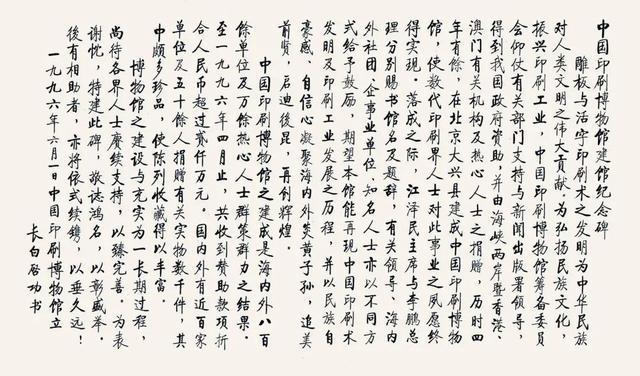 中国印刷博物館建館纪念碑
雕板与活字印刷术之发明为中华民族
对人类文明之伟大贡献。为弘扬民族文化，
振兴印刷工业，中国印刷博物館筹备委員
会仰仗有关部门支持与新闻出版署领导，
得到我国政府资助，并由海峡两岸暨香港、
澳门有关机构及热心人士之捐赠，历时四
年有餘，在北京大兴县建成中国印刷博物
館，使数代印刷界人士对此事业之夙愿终
得实现。落成之际，江泽民主席与李鹏总
理分别赐书館名及题辞，有关领导、海内
外社团、企事业单位、知名人士亦以不同方
式给予鼓励，期望本館能再现中国印刷术
发明及印刷工业发展之历程，并以民族自
豪感、自信心凝聚海内外炎黄子孙，追美
前贤，启迪後昆，再创辉煌。
中国印刷博物館之建成是海内外八百
餘单位及万餘热心人士群策群力之结果。
至一九九六年四月止，共收到赞助款项折
合人民币超过贰仟万元。国内外有近百家
单位及五十餘人捐赠有关实物数千件，其
中颇多珍品，使陈列收藏得以丰富。
博物館之建设与充实为一长期过程，
尚待各界人士赓续支持，以臻完善。为表
谢忱，特建此碑，敬誌鸿名，以彰盛举。
後有相助者，亦将依式续镌，以垂久远！
一九九六年六月一日中国印刷博物館立
长白启功书